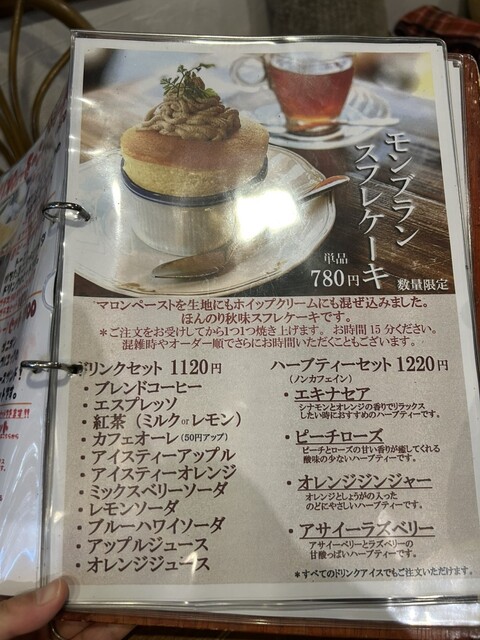 モンブラン
スフレケーキ
単品
780円
数量限定
マロンペーストを生地にもホイップクリームにも混ぜ込みました。
ほんのり秋味スフレケーキです。
*ご注文をお受けしてから1つ1つ焼き上げます。お時間15分ください。
混雑時やオーダー順でさらにお時間いただくこともございます。
リンクセット 1120円
・ブレンドコーヒー
・エスプレッソ
・紅茶（ミルクorレモン）
・カフェオーレ（50円アップ）
・アイスティーアップル
・アイスティーオレンジ
・ミックスベリーソーダ
・レモンソーダ
・ブルーハワイソーダ
・アップルジュース
・オレンジジュース
ハーブティーセット 1220円
（ノンカフェイン）
・エキナセア
シナモンとオレンジの香りでリラックス
したい時におすすめのハーブティーです。
・ピーチローズ
ピーチとローズの甘い香りが癒してくれる
酸味の少ないハーブティーです。
・オレンジジンジャー
オレンジとしょうがの入った
のどにやさしいハーブティーです。
・アサイーラズベリー
アサイーベリーとラズベリーの
甘酸っぱいハーブティーです。
*すべてのドリンクアイスでもご注文いただけます。